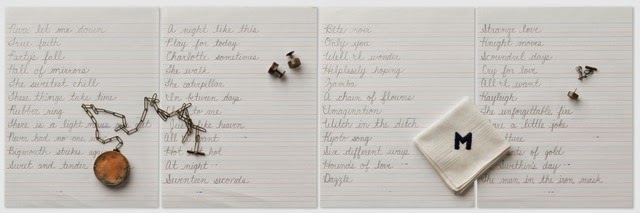 Never let me down
True faith
Party's fall
Hall of mirrors
The sweetest chill
These things take time
Rubber ring
There is a light
Never had no one
Bigmouth strikes again
Sweet and tender
A night like this
Play for today
Charlotte sometimes
The walk
The caterpillar
In between days
Close to me
Just like heaven
All I want
Hot hot
At night
Seventeen seconds
Bete noir
Only you
Will I wonder
Helplessly hoping
Zamba
A chain of flowers
Imagination
Witch in the ditch
Kyoto song
Six different ways
Hounds of love
Dazzle
Strange love
Knight moves
Scoundrel days
Cry for love
All I want
Kayleigh
The unforgettable fire
a little joke
three
of gold
The man in the iron mask
M